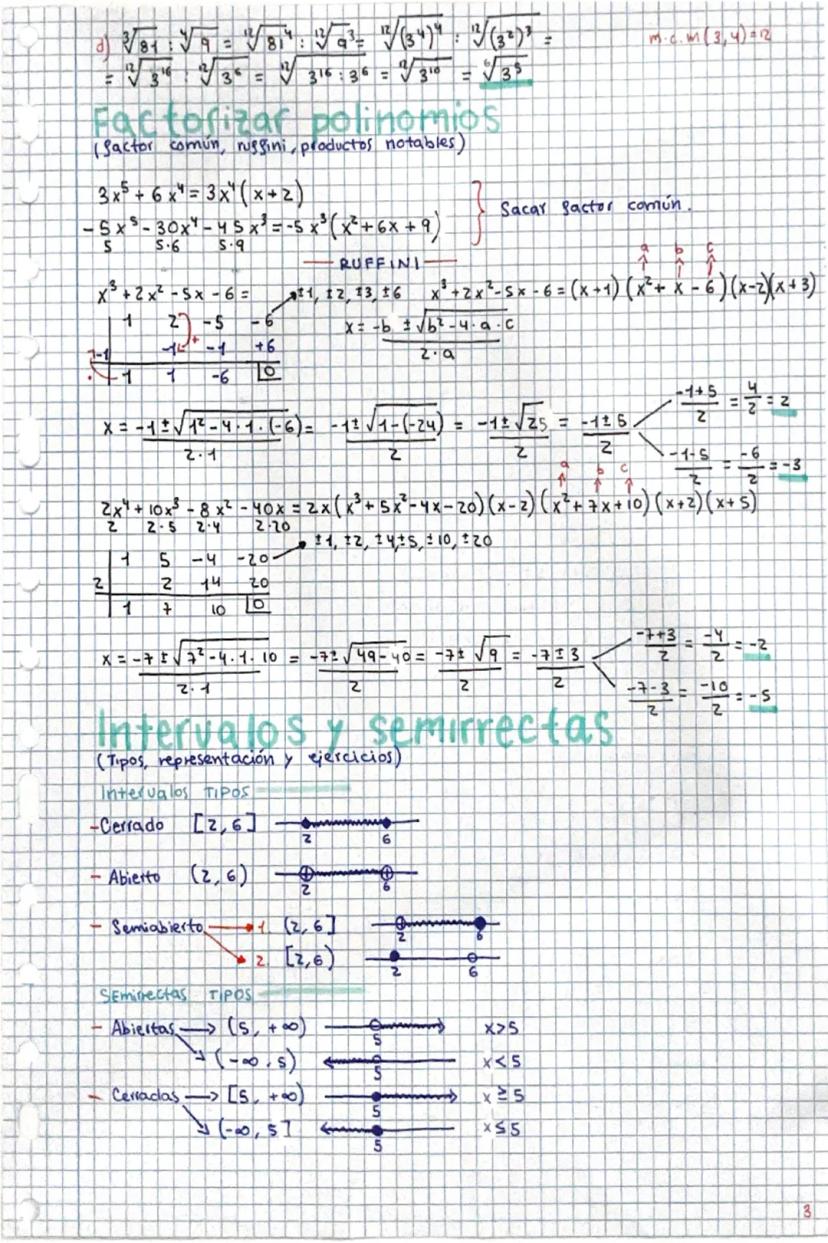 d) ∛81 : ∜9 = ¹²√81⁴ : ¹²√9³ = ¹²√(3⁴)⁴ : ¹²√(3²)³ = m.c.m(3,4)=12
= ¹²√3¹⁶ : ¹²√3⁶ = ¹²√3¹⁶ : 3⁶ = ¹²√3¹⁰ = ⁶√3⁵
Factorizar polinomios
(factor común, ruffini, productos notables)
3x⁵ + 6x⁴ = 3x⁴(x+2)
Sacar factor común.
-5x⁵ - 30x⁴ - 45x³ = -5x³(x² + 6x + 9)
5 5·6 5·9
RUFFINI
a b c
x³ + 2x² - 5x - 6 = ±1, ±2, ±3, ±6 x³ + 2x² - 5x - 6 = (x+1)(x² + x - 6)(x-2)(x+3)
1 2 -5 -6 x = -b ± √b² - 4·a·c / 2·a
-1 -1 -1 +6
1 1 -6 0
x = -1 ± √1² - 4·1·(-6) / 2·1 = -1 ± √1-(-24) / 2 = -1 ± √25 / 2 = -1 ± 5 / 2
-1+5 / 2 = 4 / 2 = 2
-1-5 / 2 = -6 / 2 = -3
a b c
2x⁴ + 10x³ - 8x² - 40x = 2x(x³ + 5x² - 4x - 20)(x-2)(x² + 7x + 10)(x+2)(x+5)
2 2·5 2·4 2·20
±1, ±2, ±4, ±5, ±10, ±20
1 5 -4 -20
2 2 14 20
1 7 10 0
x = -7 ± √7² - 4·1·10 / 2·1 = -7 ± √49-40 / 2 = -7 ± √9 / 2 = -7 ± 3 / 2
-7+3 / 2 = -4 / 2 = -2
-7-3 / 2 = -10 / 2 = -5
Intervalos y semirrectas
(Tipos, representación y ejercicios)
Intervalos TIPOS
- Cerrado [2,6]
2 6
- Abierto (2,6)
2 6
- Semiabierto 1. (2,6]
2 6
2. [2,6)
2 6
Semirrectas TIPOS
- Abiertas → (5, +∞) x>5
5
(-∞, 5) x<5
5
- Cerradas → [5, +∞) x≥5
5
(-∞, 5] x≤5
5
3